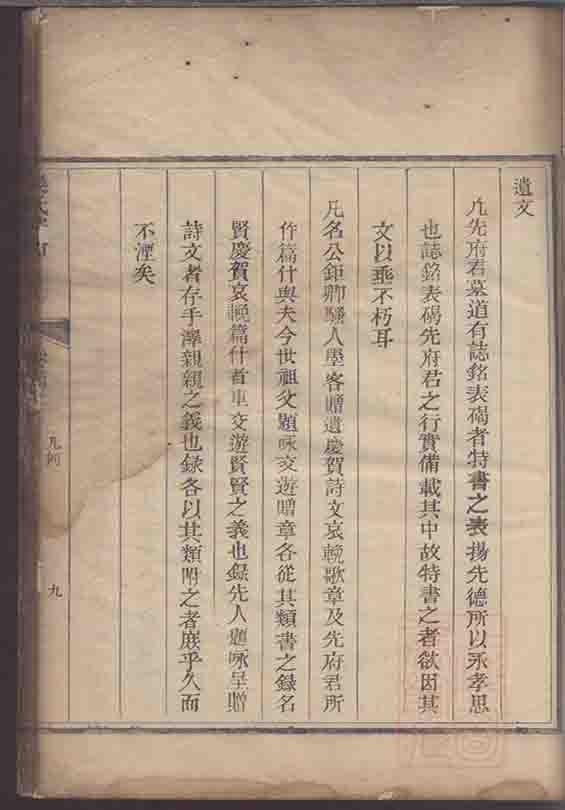 遺文
凢先府君墓道有誌銘表碣者特書之表揚先德所以永孝思
也誌銘表碣先府君之行實備載其中故特書之者欲因其
文以垂不朽耳
凡名公鉅卿騷人墨客贈遺慶賀詩文哀輓歌章及先府君所
作篇什與夫今世祖父題咏交遊贈章各從其類書之錄名
賢慶賀哀輓篇什者車交遊賢賢之義也錄先人題咏呈贈
詩文者存手澤親親之義也錄各以其類附之者庶乎久而
不湮矣
凡例
九